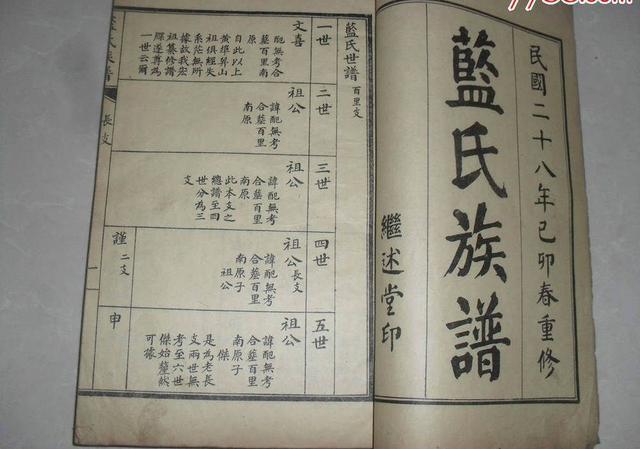 民國二十八年己卯春重修
藍氏族譜
繼述堂印
藍氏世譜 百里支
一世
文喜
配無考合
墓百里南
原
自此以上
祖俱經失
系茫無所
據故我宏
祖纂修譜
牒遂尊為
一世云爾
二世
祖公
諱配無考
合墓百里
南原
三世
祖公
諱配無考
合墓百里
南原
此本支之
總譜至四
世分為三
支
四世
祖公長支
諱配無考
合墓百里
南原子
祖公
五世
祖公
諱配無考
合墓百里
南原子
傑
是為老長
支兩世無
考至六世
傑始釐然
可據
長支
一
謹 二支
申